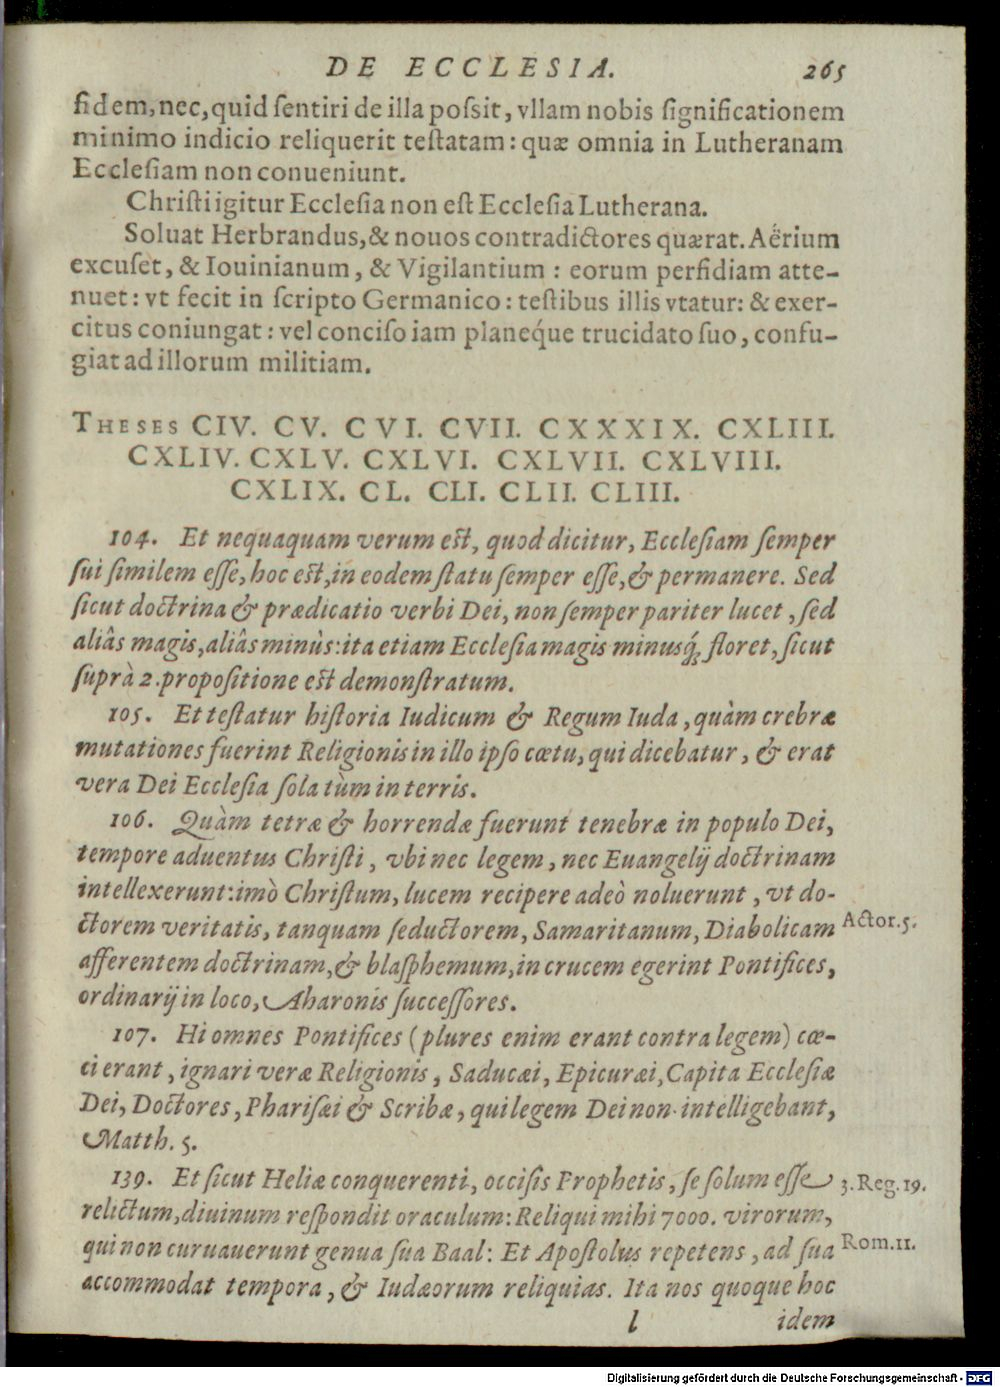 DE ECCLESIA. 265
fidem, nec, quid ſentiri de illa poſsit, vllam nobis ſignificationem
minimo indicio reliquerit teſtatam: quæ omnia in Lutheranam
Eccleſiam non conueniunt.
Chriſti igitur Eccleſia non eſt Eccleſia Lutherana.
Soluat Herbrandus, & nouos contradictores quærat. Aërium
excuſet, & Iouinianum, & Vigilantium : eorum perfidiam atte-
nuet: vt fecit in ſcripto Germanico: teſtibus illis vtatur: & exer-
citus coniungat: vel conciſo iam planeq́ue trucidato ſuo, confu-
giat ad illorum militiam.
THESES CIV. CV. CVI. CVII. CXXXIX. CXLIII.
CXLIV. CXLV. CXLVI. CXLVII. CXLVIII.
CXLIX. CL. CLI. CLII. CLIII.
104. Et nequaquam verum eſt, quod dicitur, Eccleſiam ſemper
ſui ſimilem eſſe, hoc eſt, in eodem ſtatu ſemper eſſe, & permanere. Sed
ſicut doctrina & prædicatio verbi Dei, non ſemper pariter lucet, ſed
aliâs magis, aliâs minùs: ita etiam Eccleſia magis minusq́; floret, ſicut
ſuprà 2. propoſitione eſt demonſtratum.
105. Et teſtatur hiſtoria Iudicum & Regum Iuda, quàm crebræ
mutationes fuerint Religionis in illo ipſo cœtu, qui dicebatur, & erat
vera Dei Eccleſia ſola tùm in terris.
106. Quàm tetræ & horrendæ fuerunt tenebræ in populo Dei,
tempore aduentus Chriſti, vbi nec legem, nec Euangelij doctrinam
intellexerunt: imò Chriſtum, lucem recipere adeò noluerunt, vt do-
ctorem veritatis, tanquam ſeductorem, Samaritanum, Diabolicam Actor. 5.
afferentem doctrinam, & blaſphemum, in crucem egerint Pontifices,
ordinarij in loco, Aharonis ſucceſſores.
107. Hi omnes Pontifices (plures enim erant contra legem) cœ-
ci erant, ignari veræ Religionis, Saducæi, Epicuræi, Capita Eccleſiæ
Dei, Doctores, Phariſæi & Scribæ, qui legem Dei non intelligebant,
Matth. 5.
139. Et ſicut Heliæ conquerenti, occiſis Prophetis, ſe ſolum eſſe 3. Reg. 19.
relictum, diuinum reſpondit oraculum: Reliqui mihi 7000. virorum,
qui non curuauerunt genua ſua Baal: Et Apoſtolus repetens, ad ſua Rom. 11.
accommodat tempora, & Iudæorum reliquias. Ita nos quoque hoc
l idem
Digitalisierung gefördert durch die Deutsche Forschungsgemeinschaft - DFG